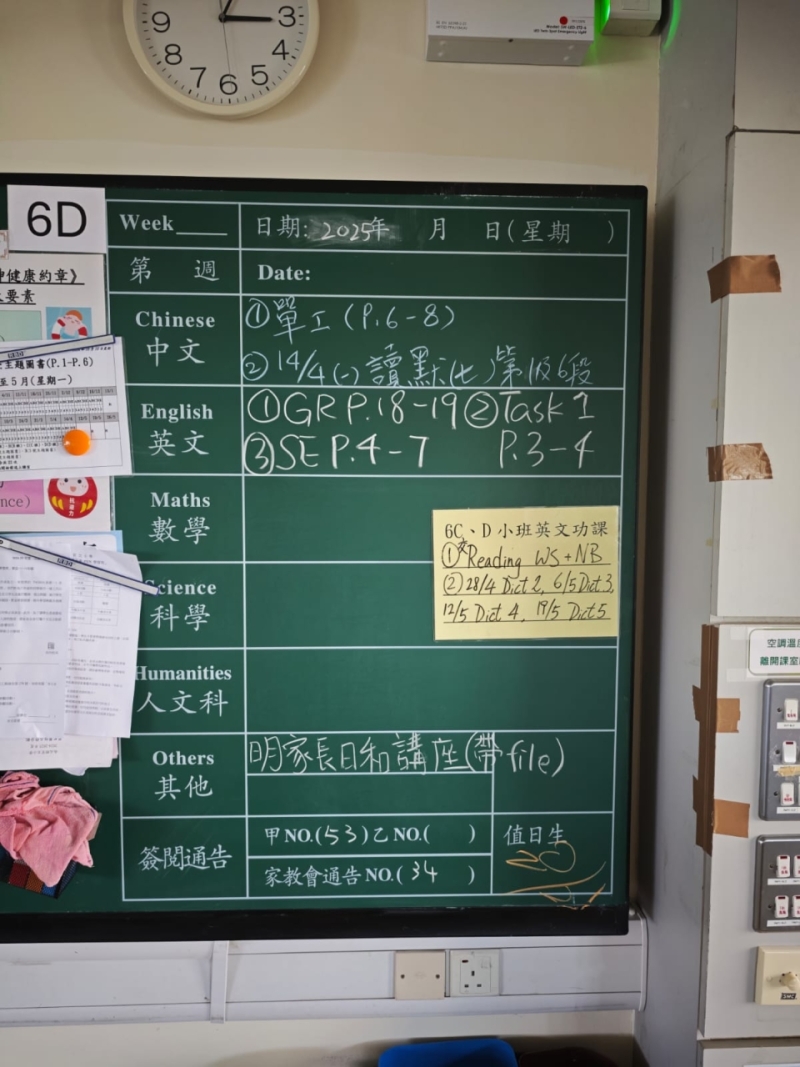 3
4
5
6
7
8
6D
Week
日期: 2025年 月 日(星期 )
第 週
Date:
健康約章》
要素
主題圖書(P.1-P.6)
至 5 月(星期一)
Chinese
中文
①單工(P.6-8)
②14/4(一)讀默(七)第1及6段
English
英文
①GR P.18-19 ②Task 1
③SE P.4-7 P.3-4
Maths
數學
Science
科學
6C、D 小班英文功課
①交Reading WS + NB
②28/4 Dict 2, 6/5 Dict 3,
12/5 Dict 4, 19/5 Dict 5
Humanities
人文科
Others
其他
明家長日和講座(帶file)
簽閱通告
甲NO.(53)乙NO.( )
家教會通告NO.(34 )
值日生
20
空調溫度
離開課室